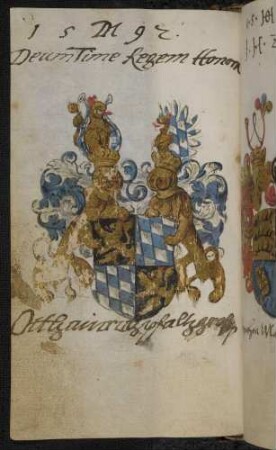 15 M 92.
Deum Time Regem Honora
Ottheinrich pfaltzgraff